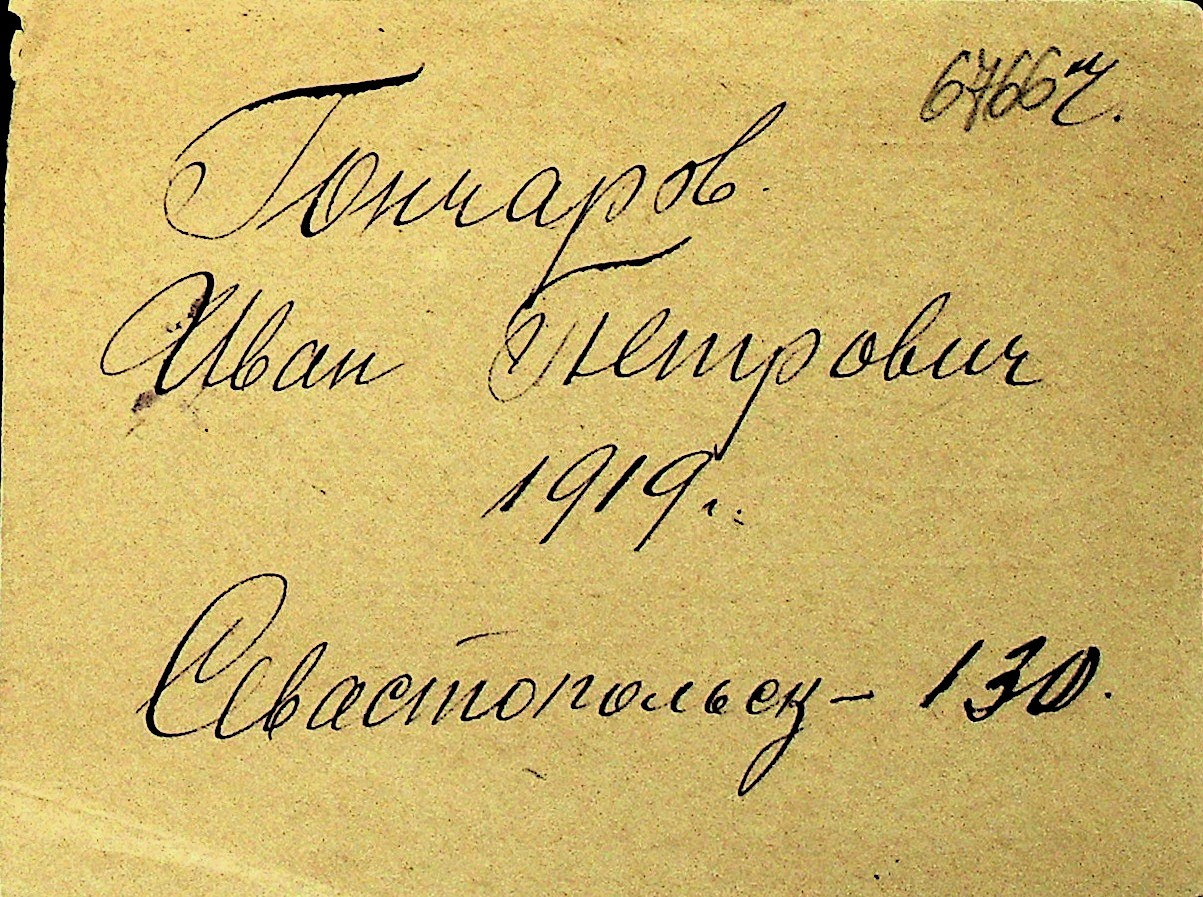 6766 ч.
Гончаров.
Иван Петрович
1919 г.
Севастопольск – 130.